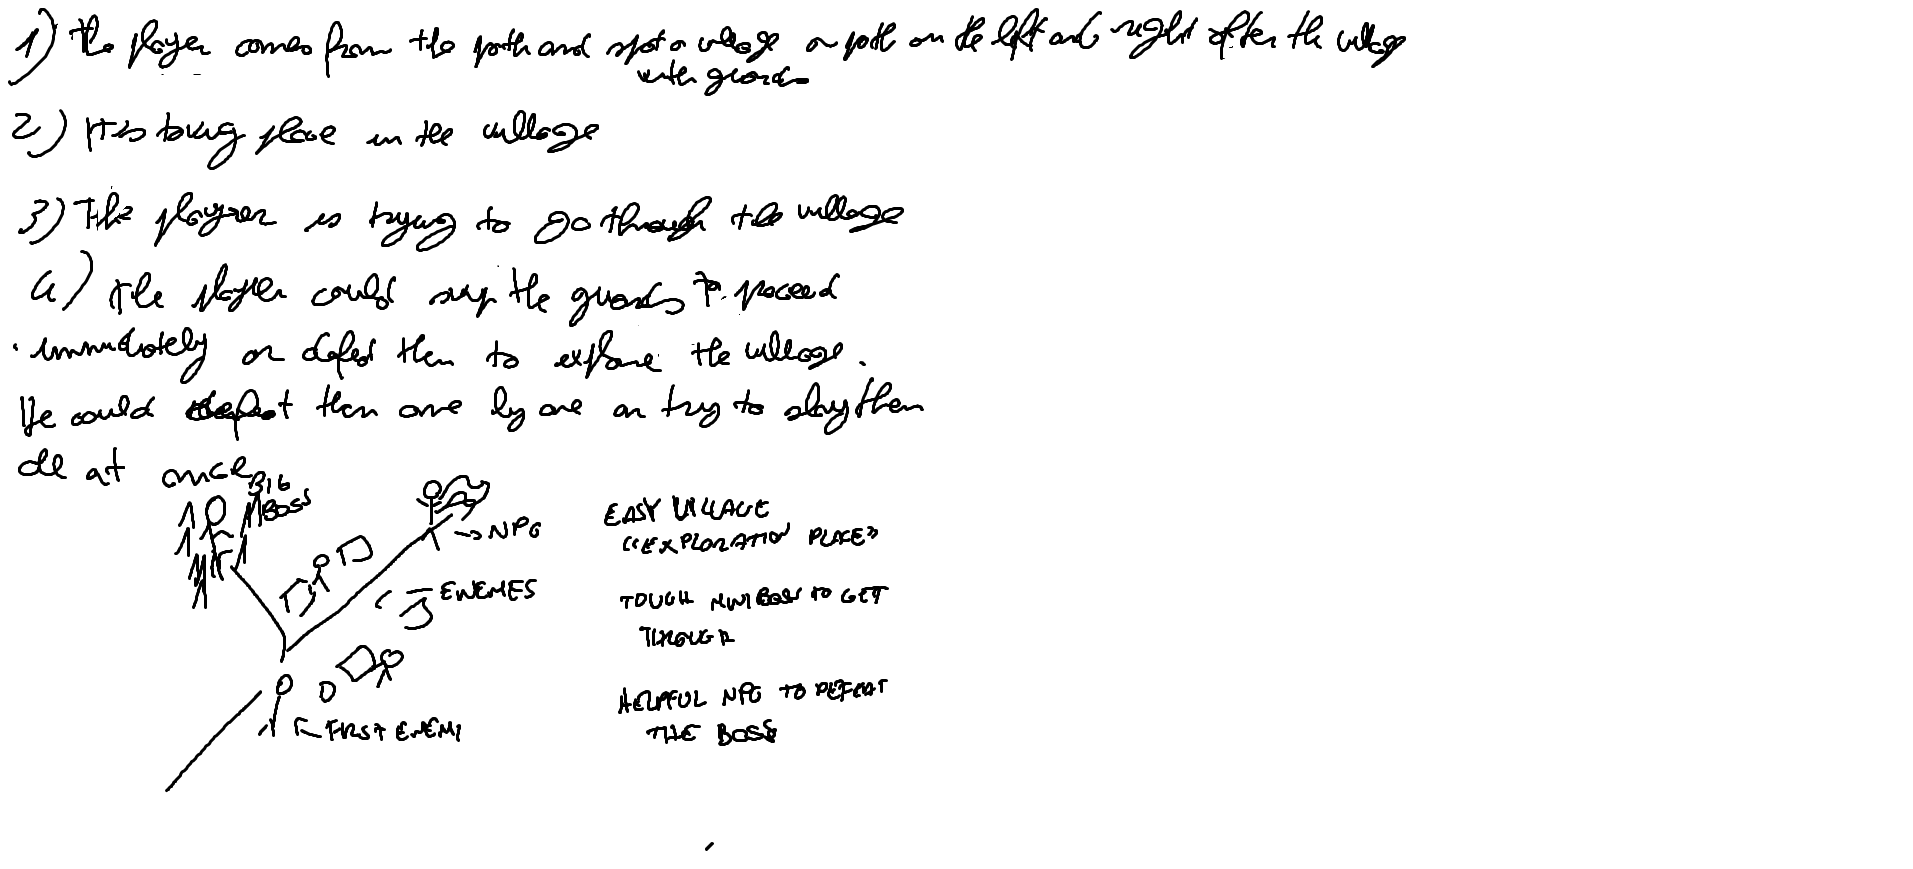 1) The player comes from the path and spot a village a path on the left and right after the village
with guards
2) It is taking place in the village
3) The player is trying to go through the village
4) The player could skip the guards to proceed
immediately or defeat them to explore the village.
He could defeat them one by one or try to slay them
all at once
BIG
BOSS
→ NPC
ENEMES
FIRST ENEMI
EASY VILLAGE
"EXPLORATION PLACE"
TOUGH MINIBOSS TO GET
THROUGH
HELPFUL NPC TO DEFEAT
THE BOSS